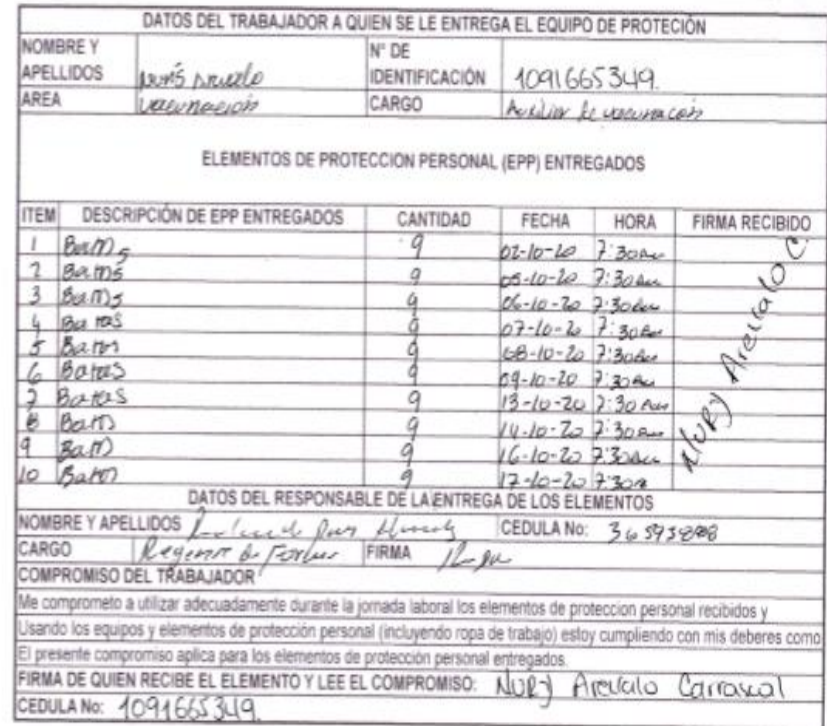 DATOS DEL TRABAJADOR A QUIEN SE LE ENTREGA EL EQUIPO DE PROTECIÓN
NOMBRE Y APELLIDOS N° DE IDENTIFICACIÓN 1091665349.
AREA Vacunación CARGO Auxiliar de vacunación
ELEMENTOS DE PROTECCION PERSONAL (EPP) ENTREGADOS
ITEM DESCRIPCIÓN DE EPP ENTREGADOS CANTIDAD FECHA HORA FIRMA RECIBIDO
1 Batas 9 02-10-20 7:30am
2 Batas 9 05-10-20 7:30am
3 Batas 9 06-10-20 7:30am
4 Batas 9 07-10-20 7:30am
5 Batas 9 08-10-20 7:30am
6 Batas 9 09-10-20 7:30am
7 Batas 9 13-10-20 7:30am
8 Batas 9 14-10-20 7:30am
9 Batas 9 16-10-20 7:30am
10 Batas 9 17-10-20 7:30a
NURY Arevalo C.
DATOS DEL RESPONSABLE DE LA ENTREGA DE LOS ELEMENTOS
NOMBRE Y APELLIDOS CEDULA No:
CARGO Regente de FIRMA
COMPROMISO DEL TRABAJADOR
Me comprometo a utilizar adecuadamente durante la jornada laboral los elementos de proteccion personal recibidos y
Usando los equipos y elementos de protección personal (incluyendo ropa de trabajo) estoy cumpliendo con mis deberes como
El presente compromiso aplica para los elementos de protección personal entregados.
FIRMA DE QUIEN RECIBE EL ELEMENTO Y LEE EL COMPROMISO: NURY Arevalo Carrascal
CEDULA No: 1091665349.